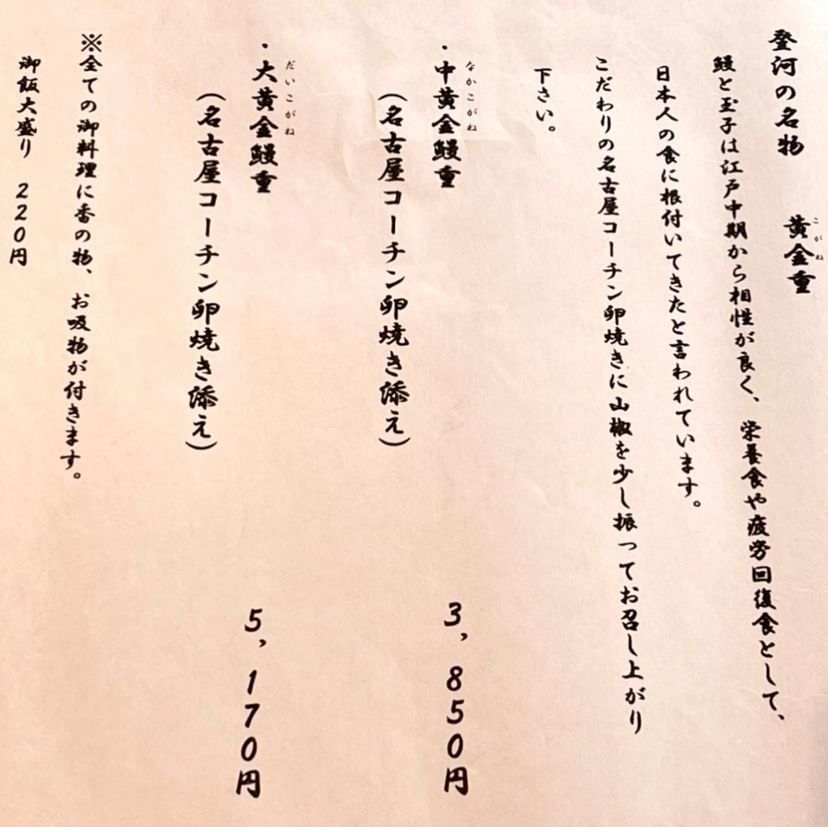 登河の名物　黄金重
こがね
鰻と玉子は江戸中期から相性が良く、栄養食や疲労回復食として、
日本人の食に根付いてきたと言われています。
こだわりの名古屋コーチン卵焼きに山椒を少し振ってお召し上がり
下さい。
・中黄金鰻重
なかこがね
（名古屋コーチン卵焼き添え）
3,850円
・大黄金鰻重
だいこがね
（名古屋コーチン卵焼き添え）
5,170円
※全ての御料理に香の物、お吸物が付きます。
御飯大盛り　220円